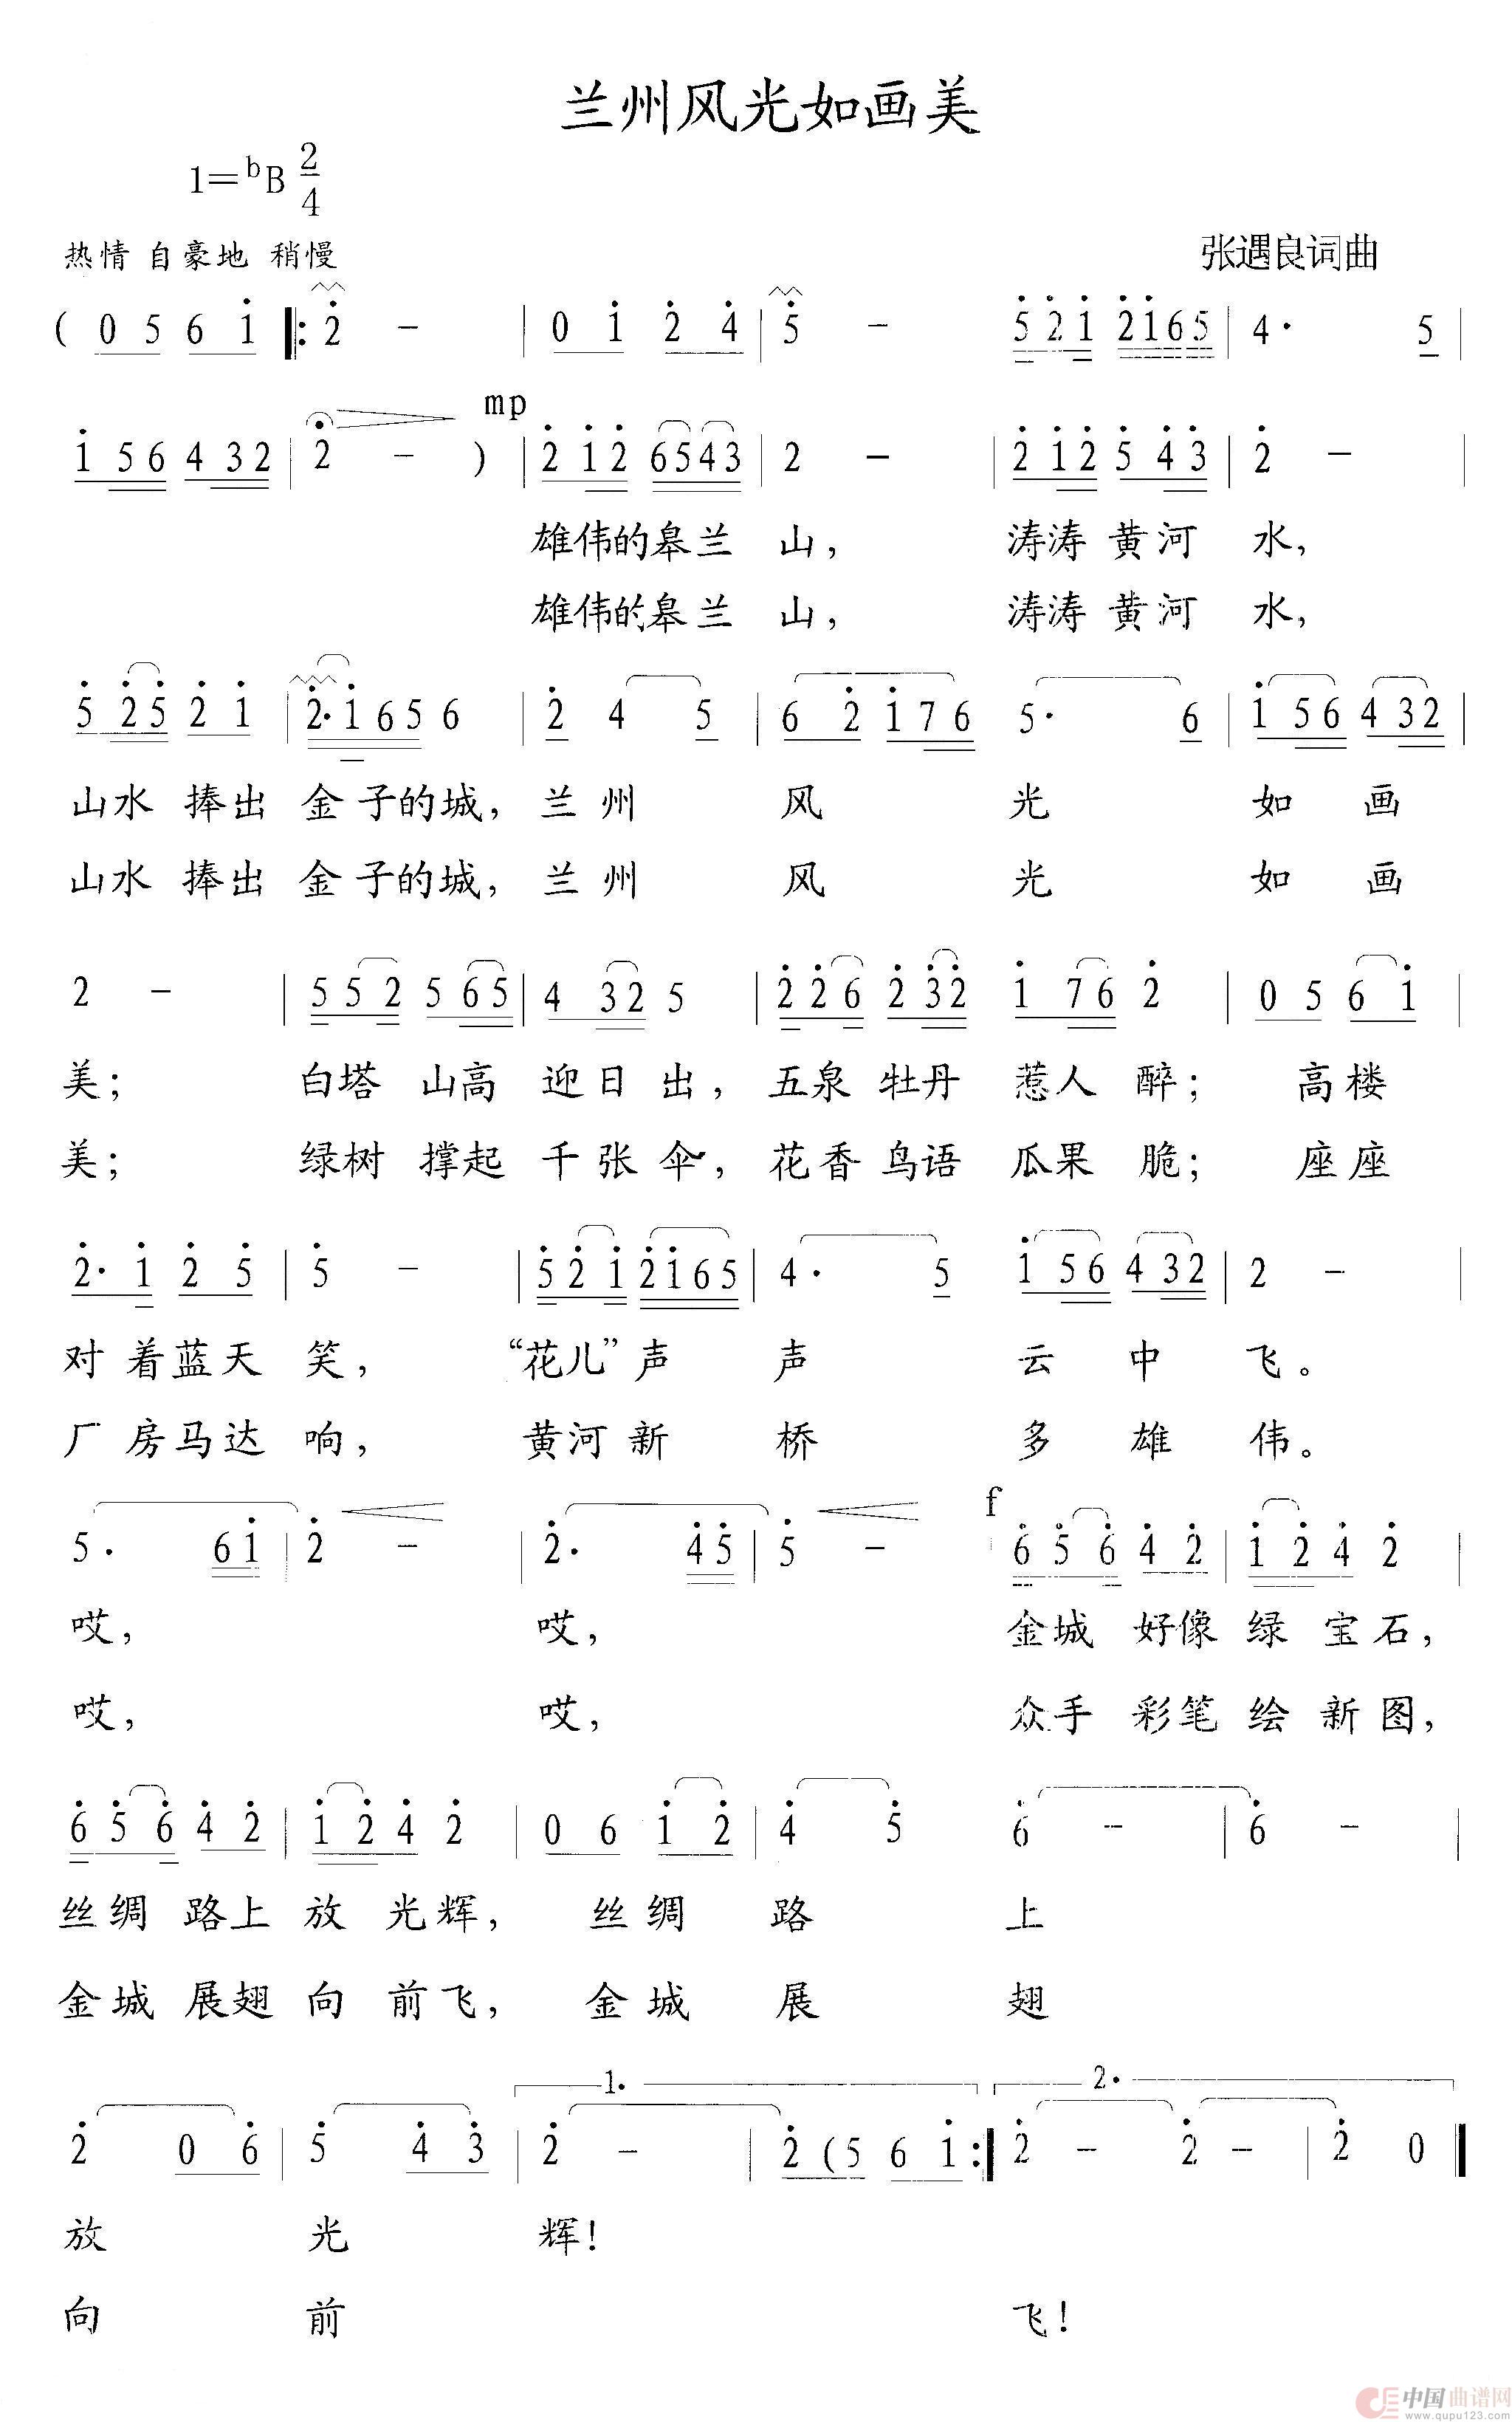 兰州风光如画美
1=ᵇB 2/4
热情 自豪地 稍慢
张遇良词曲
( 0 5 6 i̇ |: 2̇ - | 0 i̇ 2̇ 4̇ | 5̇ - | 5̇ 2̇ i̇ 2̇ i̇ 6 5 | 4· 5 |
mp
i̇ 5 6 4 3 2 | 2 - ) | 2̇ i̇ 2̇ 6 5 4 3 | 2 - | 2̇ i̇ 2̇ 5̇ 4̇ 3̇ | 2̇ - |
雄伟的皋兰 山, 涛涛 黄河 水,
雄伟的皋兰 山, 涛涛 黄河 水,
5̇ 2̇ 5̇ 2̇ i̇ | 2̇· i̇ 6 5 6 | 2̇ 4 5 | 6 2̇ i̇ 7 6 5· 6 | i̇ 5 6 4 3 2 |
山水 捧出 金子的城, 兰州 风 光 如 画
山水 捧出 金子的城, 兰州 风 光 如 画
2 - | 5 5 2 5 6 5 | 4 3 2 5 | 2̇ 2̇ 6 2̇ 3̇ 2̇ i̇ 7 6 2̇ | 0 5 6 i̇ |
美; 白塔 山高 迎日 出, 五泉 牡丹 惹人 醉; 高楼
美; 绿树 撑起 千张 伞, 花香 鸟语 瓜果 脆; 座座
2̇· i̇ 2̇ 5̇ | 5̇ - | 5̇ 2̇ i̇ 2̇ i̇ 6 5 | 4· 5 i̇ 5 6 4 3 2 | 2 - |
对 着蓝天 笑, “花儿”声 声 云 中 飞。
厂 房马达 响, 黄河 新 桥 多 雄 伟。
f
5· 6 i̇ | 2̇ - | 2̇· 4̇ 5̇ | 5̇ - | 6̇ 5̇ 6̇ 4̇ 2̇ | i̇ 2̇ 4̇ 2̇ |
哎, 哎, 金城 好像 绿 宝石,
哎, 哎, 众手 彩笔 绘 新图,
6̇ 5̇ 6̇ 4̇ 2̇ | i̇ 2̇ 4̇ 2̇ | 0 6 i̇ 2̇ | 4̇ 5̇ 6̇ - | 6̇ - |
丝绸 路上 放 光辉, 丝绸 路 上
金城 展翅 向 前飞, 金城 展 翅
1. 2.
2̇ 0 6̇ | 5̇ 4̇ 3̇ | 2̇ - | 2̇ ( 5 6 i̇ :| 2̇ - 2̇ - | 2̇ 0 ‖
放 光 辉!
向 前 飞!
中国曲谱网
www.qupu123.com